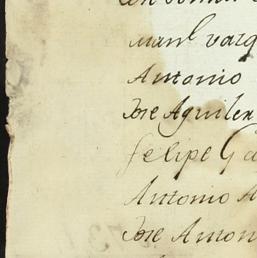 Man^l Varg
Antonio
Jose Aguilera
Felipe Ga
Antonio A
Jose Anton